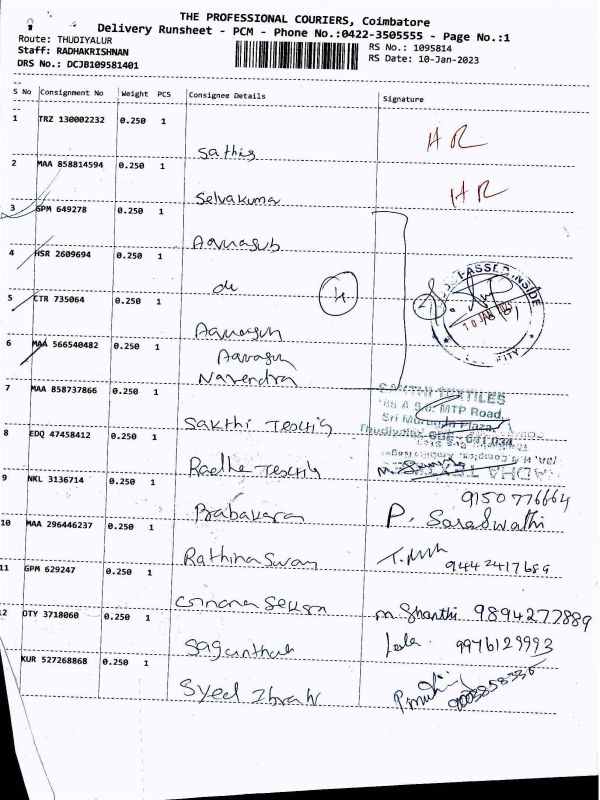 THE PROFESSIONAL COURIERS, Coimbatore
Delivery Runsheet - PCM - Phone No.:0422-3505555 - Page No.:1
Route: THUDIYALUR
RS No.: 1095814
Staff: RADHAKRISHNAN
RS Date: 10-Jan-2023
DRS No.: DCJB109581401
S No Consignment No Weight PCS Consignee Details Signature
1 TRZ 130002232 0.250 1
Sathis HR
2 MAA 858814594 0.250 1
Selvakuma HR
3 GPM 649278 0.250 1
4 HSR 2609694 0.250 1
do 4
PASSED INSIDE
10 JAN
5 CTR 735064 0.250 1
6 MAA 566540482 0.250 1
Narendra
7 MAA 858737866 0.250 1
Sakthi Textils
SAKTHI TEXTILES
MTP Road,
Sri Murugan Plaza,
641 034
8 EDQ 47458412 0.250 1
Radhe Textils
9 NKL 3136714 0.250 1
9150776664
Prabakaran P. Saraswathi
10 MAA 296446237 0.250 1
Rathinaswamy 9442417689
11 GPM 629247 0.250 1
Gnana Sekaran M. Shanthi 9894277889
12 OTY 3718060 0.250 1
Sagunthala 9976129993
KUR 527268868 0.250 1
Syed Ibrah